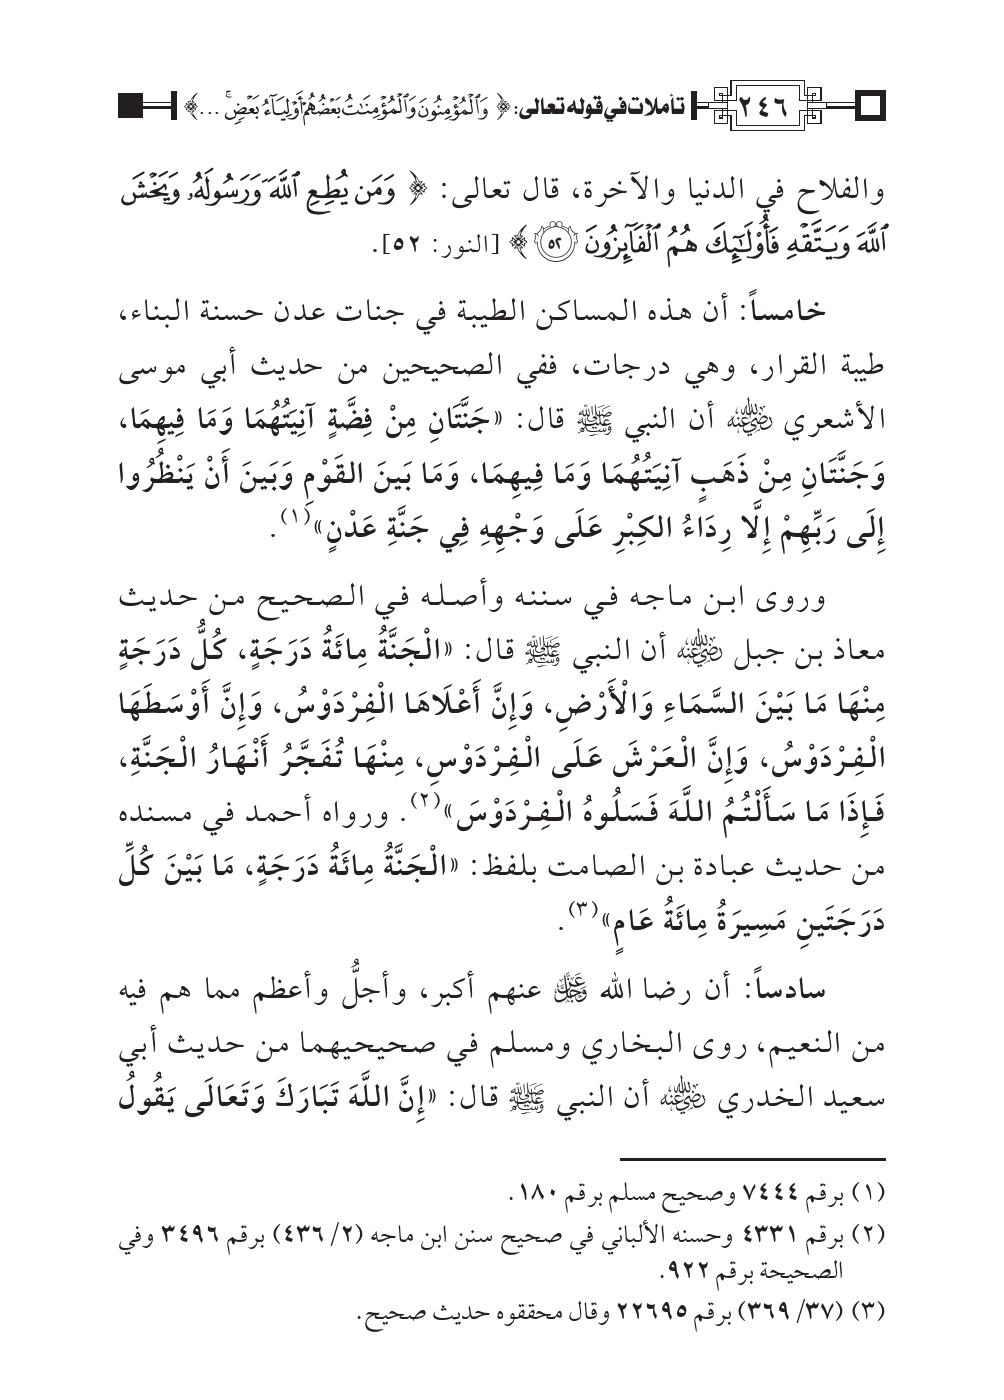 ٢٤٦ تأملات في قوله تعالى: ﴿ وَٱلْمُؤْمِنُونَ وَٱلْمُؤْمِنَٰتُ بَعْضُهُمْ أَوْلِيَآءُ بَعْضٍۚ ... ﴾
والفلاح في الدنيا والآخرة، قال تعالى: ﴿ وَمَن يُطِعِ ٱللَّهَ وَرَسُولَهُۥ وَيَخْشَ
ٱللَّهَ وَيَتَّقْهِ فَأُوْلَٰٓئِكَ هُمُ ٱلْفَآئِزُونَ ٥٢ ﴾ [النور: ٥٢].
خامساً: أن هذه المساكن الطيبة في جنات عدن حسنة البناء،
طيبة القرار، وهي درجات، ففي الصحيحين من حديث أبي موسى
الأشعري رضي الله عنه أن النبي ﷺ قال: «جَنَّتَانِ مِنْ فِضَّةٍ آنِيَتُهُمَا وَمَا فِيهِمَا،
وَجَنَّتَانِ مِنْ ذَهَبٍ آنِيَتُهُمَا وَمَا فِيهِمَا، وَمَا بَينَ القَوْمِ وَبَينَ أَنْ يَنْظُرُوا
إِلَى رَبِّهِمْ إِلَّا رِدَاءُ الكِبْرِ عَلَى وَجْهِهِ فِي جَنَّةِ عَدْنٍ»(١).
وروى ابن ماجه في سننه وأصله في الصحيح من حديث
معاذ بن جبل رضي الله عنه أن النبي ﷺ قال: «الْجَنَّةُ مِائَةُ دَرَجَةٍ، كُلُّ دَرَجَةٍ
مِنْهَا مَا بَيْنَ السَّمَاءِ وَالْأَرْضِ، وَإِنَّ أَعْلَاهَا الْفِرْدَوْسُ، وَإِنَّ أَوْسَطَهَا
الْفِرْدَوْسُ، وَإِنَّ الْعَرْشَ عَلَى الْفِرْدَوْسِ، مِنْهَا تُفَجَّرُ أَنْهَارُ الْجَنَّةِ،
فَإِذَا مَا سَأَلْتُمُ اللَّهَ فَسَلُوهُ الْفِرْدَوْسَ»(٢). ورواه أحمد في مسنده
من حديث عبادة بن الصامت بلفظ: «الْجَنَّةُ مِائَةُ دَرَجَةٍ، مَا بَيْنَ كُلِّ
دَرَجَتَينِ مَسِيرَةُ مِائَةُ عَامٍ»(٣).
سادساً: أن رضا الله عز وجل عنهم أكبر، وأجلُّ وأعظم مما هم فيه
من النعيم، روى البخاري ومسلم في صحيحيهما من حديث أبي
سعيد الخدري رضي الله عنه أن النبي ﷺ قال: «إِنَّ اللَّهَ تَبَارَكَ وَتَعَالَى يَقُولُ
(١) برقم ٧٤٤٤ وصحيح مسلم برقم ١٨٠.
(٢) برقم ٤٣٣١ وحسنه الألباني في صحيح سنن ابن ماجه (٢/ ٤٣٦) برقم ٣٤٩٦ وفي
الصحيحة برقم ٩٢٢.
(٣) (٣٧/ ٣٦٩) برقم ٢٢٦٩٥ وقال محققوه حديث صحيح.